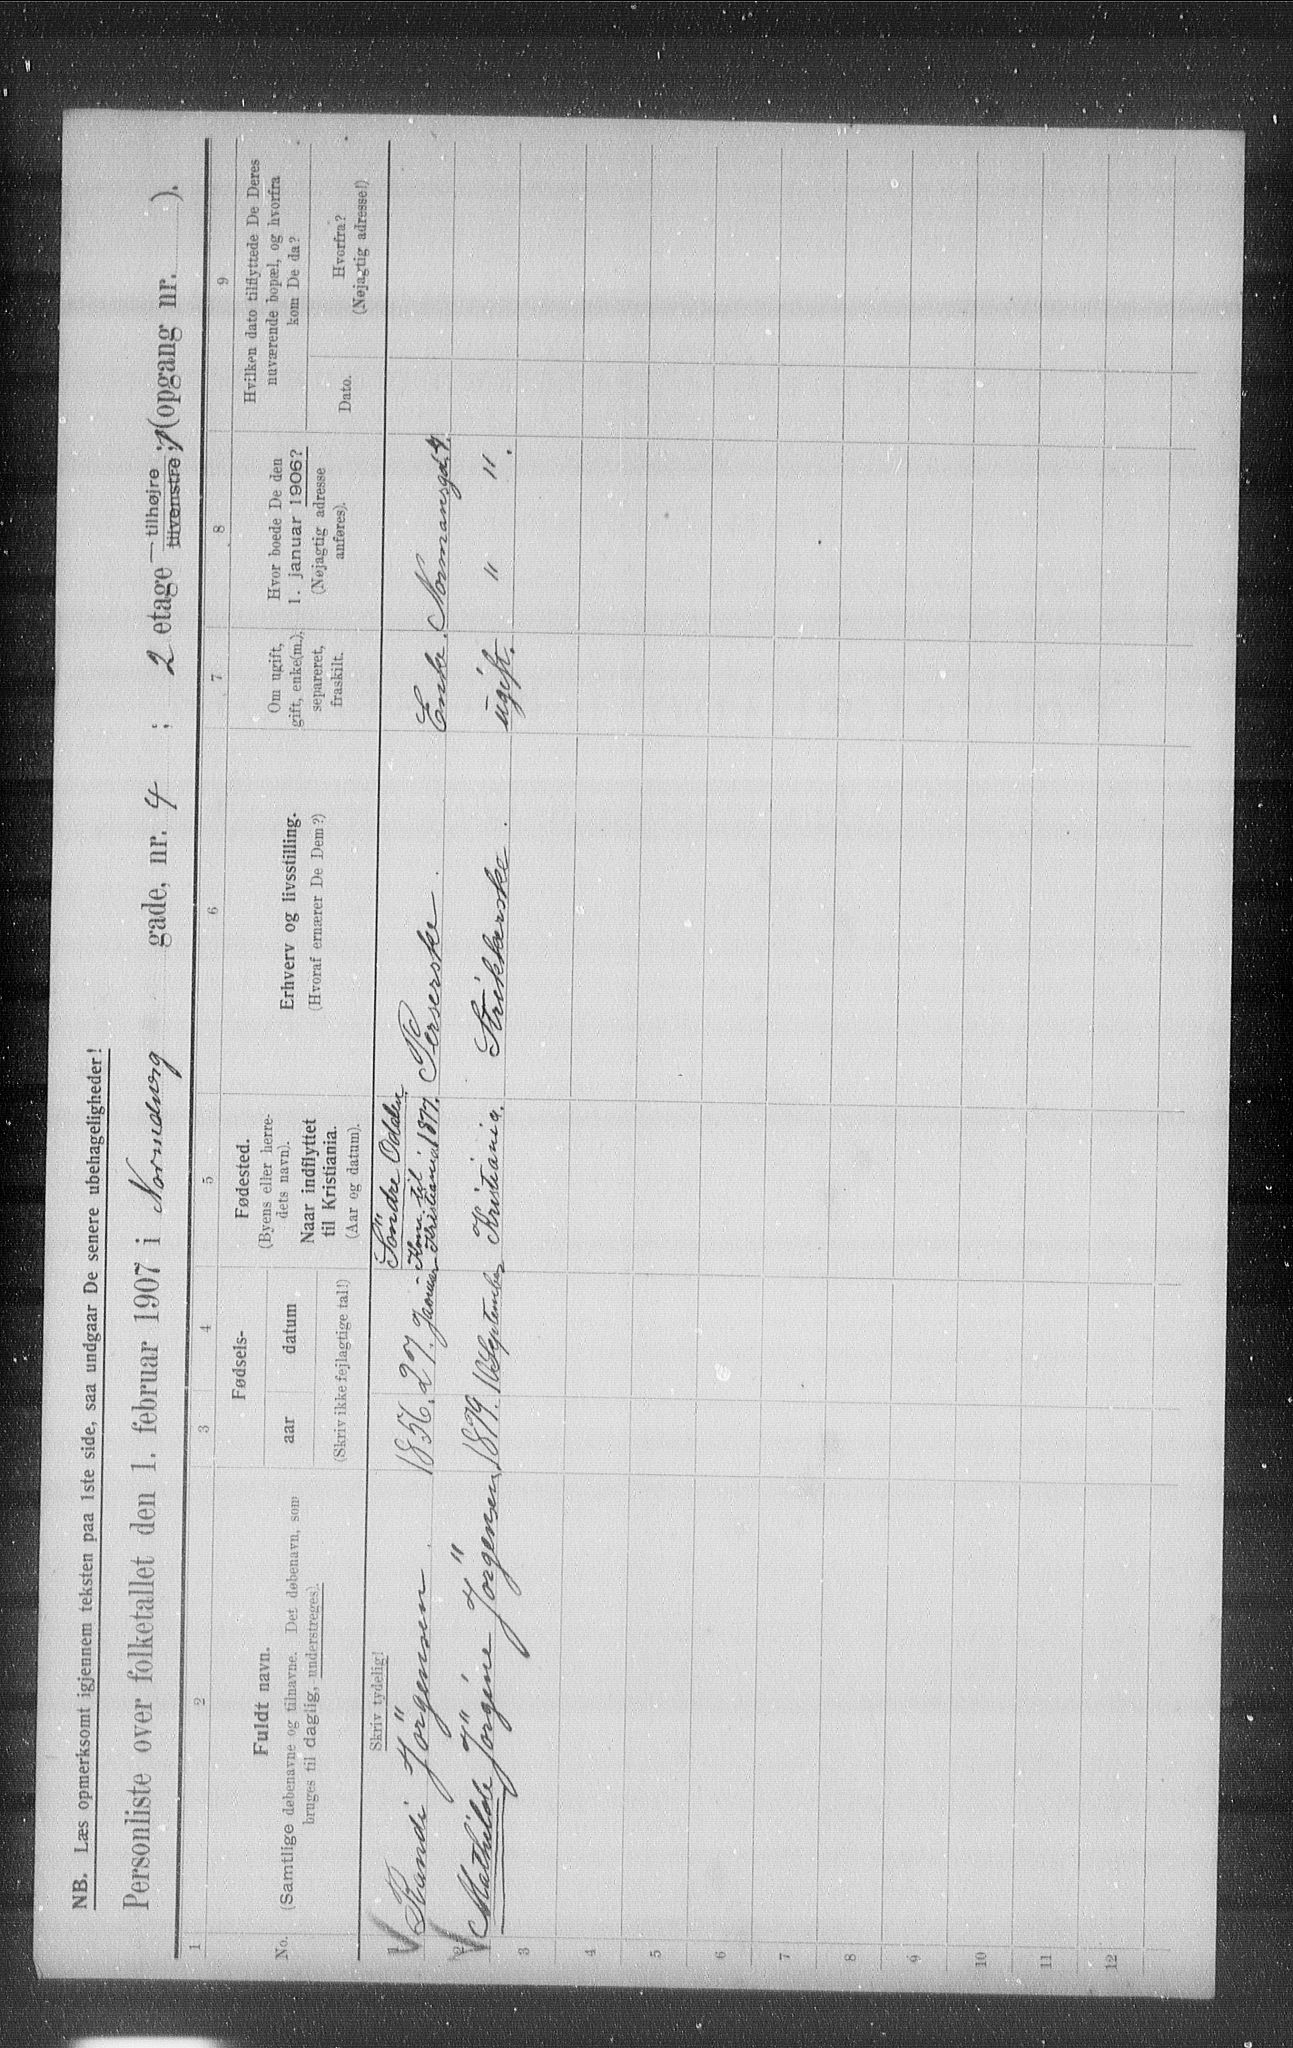 NB. Læs opmerksomt igjennem teksten paa 1ste side, saa undgaar De senere ubehageligheder!
Personliste over folketallet den 1. februar 1907 i gade, nr. 4 ; 2 etage tilhøjre tilvenstre (opgang nr. ).
1 2 3 4 5 6 7 8 9
No.
Fuldt navn.
(Samtlige døbenavne og tilnavne. Det døbenavn, som
bruges til daglig, understreges).
Fødsels-
aar datum
(Skriv ikke fejlagtige tal!)
Fødested.
(Byens eller herre-
dets navn).
Naar indflyttet
til Kristiania.
(Aar og datum).
Erhverv og livsstilling.
(Hvoraf ernærer De Dem?)
Om ugift,
gift, enke(m.),
separeret,
fraskilt.
Hvor boede De den
1. januar 1906?
(Nøjagtig adresse
anføres).
Hvilken dato tilflyttede De Deres
nuværende bopæl, og hvorfra
kom De da?
Dato.
Hvorfra?
(Nøjagtig adresse!)
Skriv tydelig!
1 Randi Jörgensen 1856. 27. Januar Söndre Odalen Kom til Kristiania 1877. Perserske. Enke. Normansgd. 4.
2 Mathilde Jörgine Jörgensen, 1879. 16 September Kristiania. Strikkerske. ugift. " "
3
4
5
6
7
8
9
10
11
12